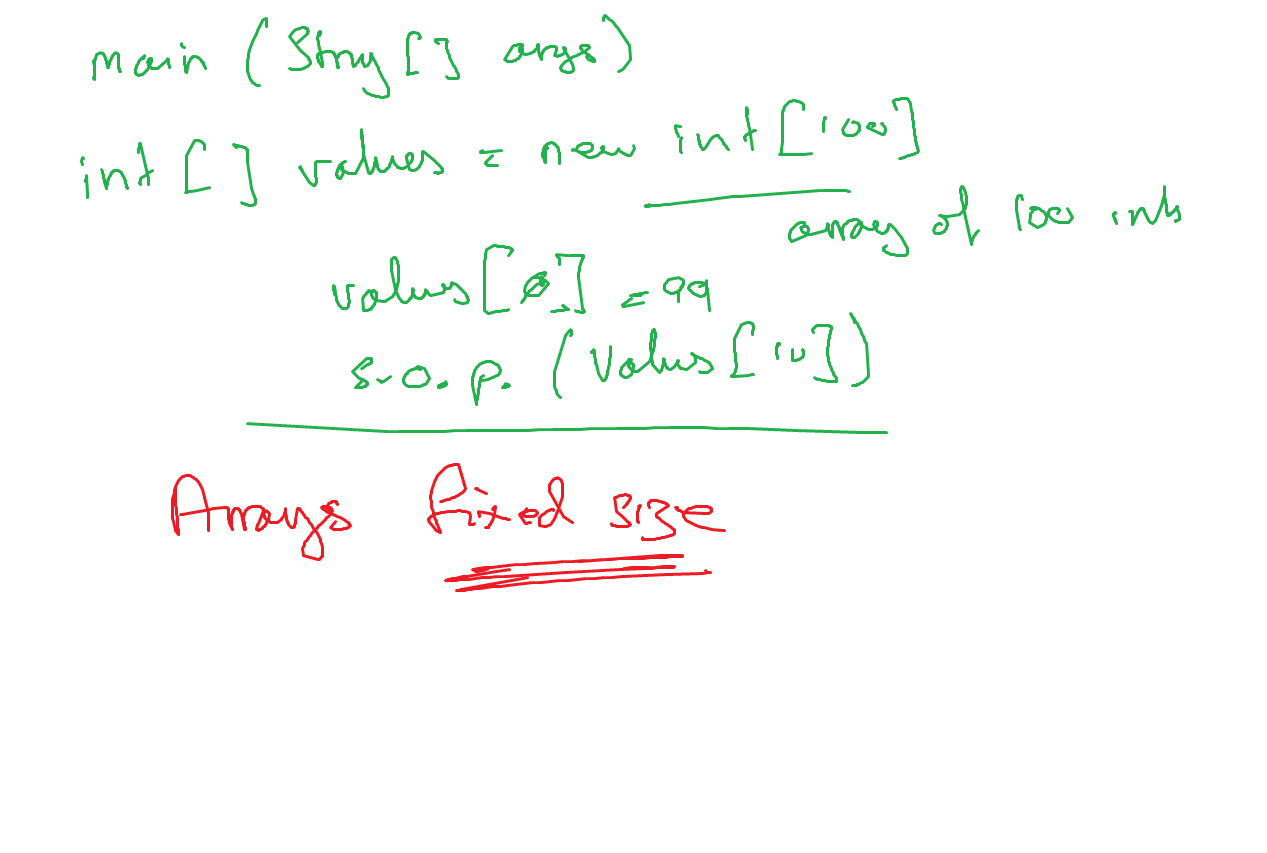 main (String [] args)
int [] values = new int [100]
array of 100 ints
values [0] = 99
S.O.P. (Values [10])
Arrays fixed size